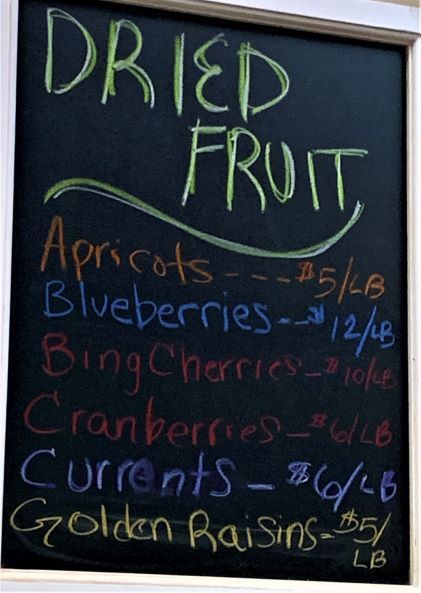 DRIED
FRUIT
Apricots - - - $5/LB
Blueberries - - $12/LB
Bing Cherries - $10/LB
Cranberries - $6/LB
Currents - $6/LB
Golden Raisins - $5/
LB